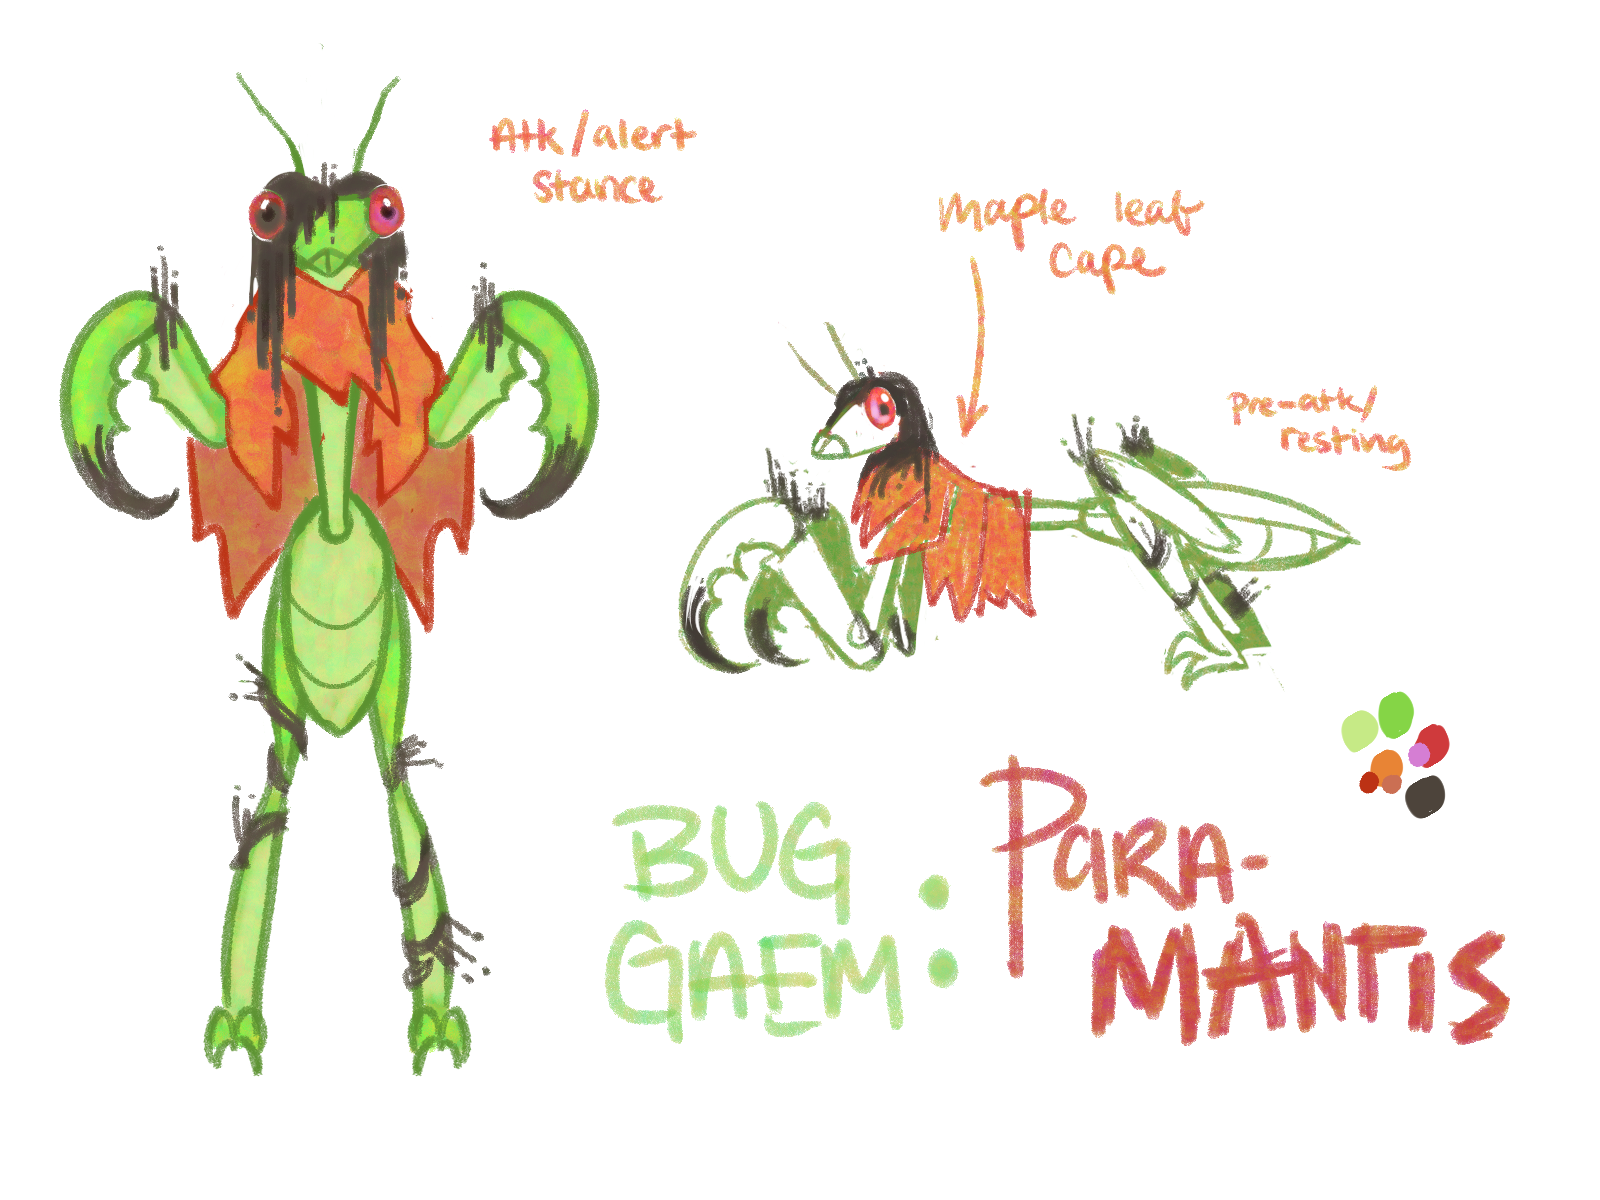 Atk/alert
stance
Maple leaf
cape
pre-atk/
resting
BUG
GAEM
: PARA-
MANTIS